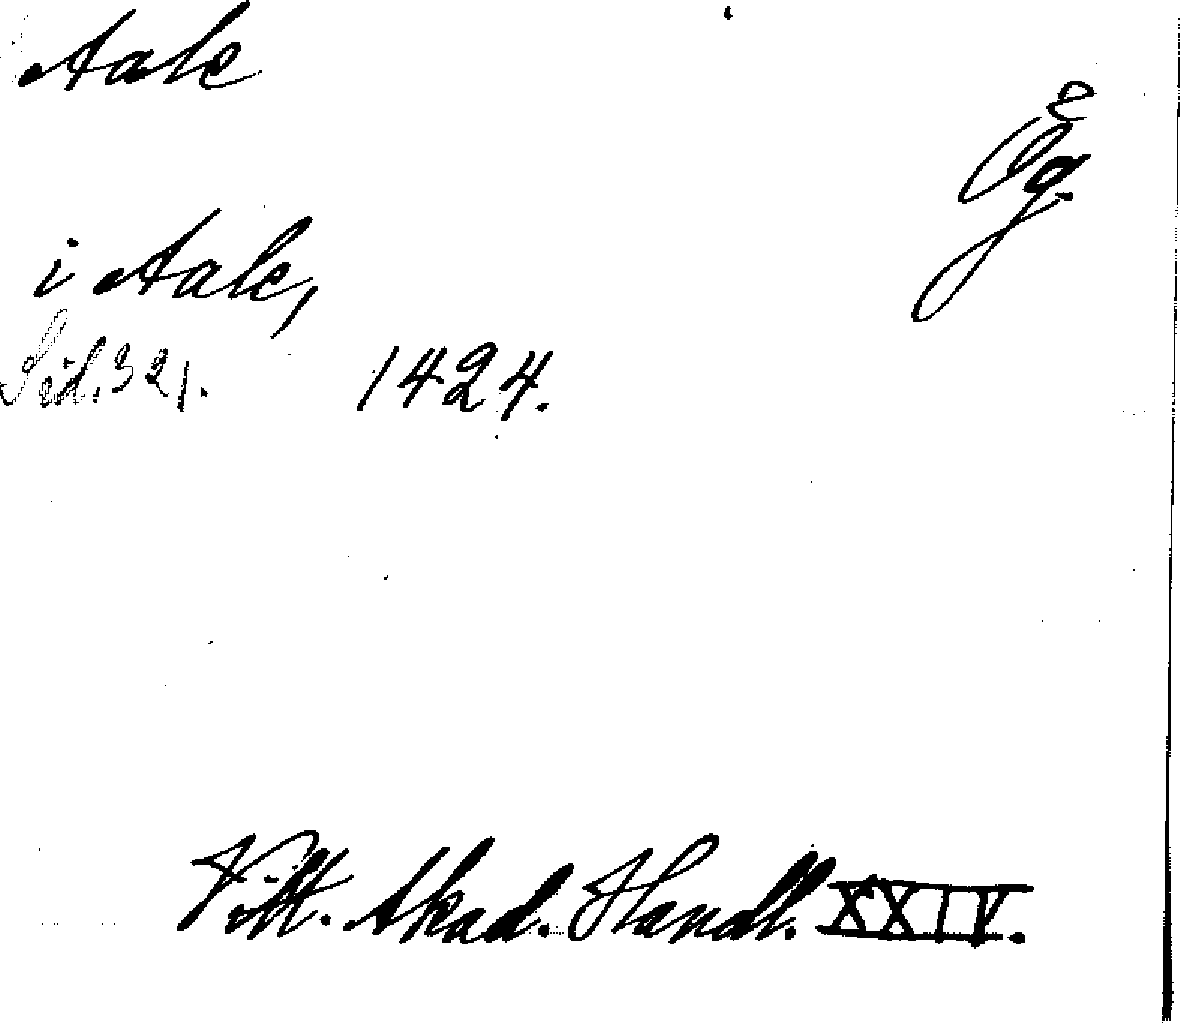 Aale
Ög.
i Aale,
Sid. 321. 1424.
Vitt. Akad. Handl. XXIV.